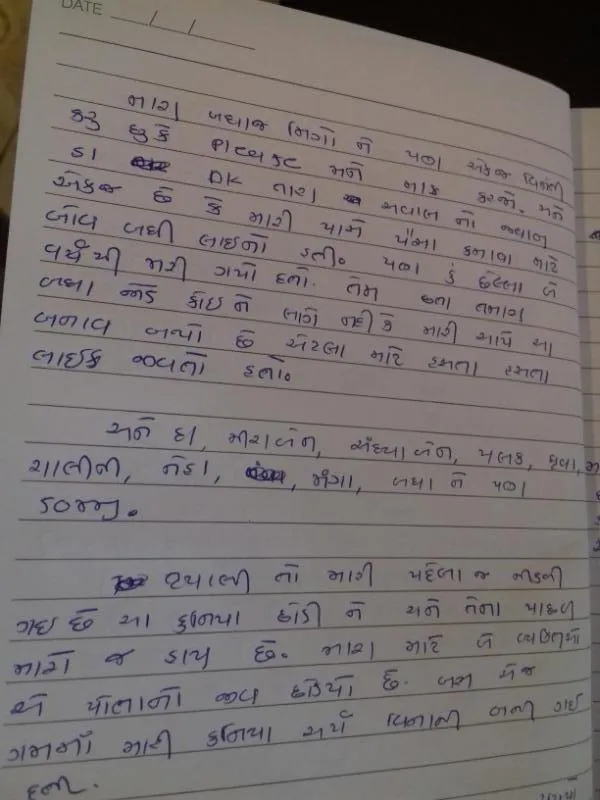 DATE / /
મારા બધાજ મિત્રો ને પણ એકજ વિનંતી
કરુ છુ કે please મને માફ કરજો. મને
કા DK તારા સવાલ નો જવાબ
એકજ છે કે મારી પાસે પૈસા કમાવા માટે
બોવ બધી લાઇનો હતી. પણ હું છેલ્લા બે
વર્ષ થી મરી ગયો હતો. તેમ છતા તમારા
બધા જોડે કોઇ ને લાગે નહી કે મારી સાથે આ
બનાવ બન્યો છે એટલા માટે હસતા હસતા
લાઇફ જીવતો હતો.
અને હા, મીરાબેન, સંધ્યાબેન, પલક, ધ્રુવા,
શાલીની, નેહા, ગંગા, બધા ને પણ
કહજ્યુ.
દયાલી તો મારી પહેલા જ નીકળી
ગઇ છે આ દુનિયા છોડી ને અને તેના પાછળ
મારો જ હાથ છે. મારા માટે બે વ્યક્તિઓ
એ પોતાનો જીવ છોડયો છે. બસ એજ
ગમમાં મારી દુનિયા અર્થ વિનાની બની ગઇ
હતી.